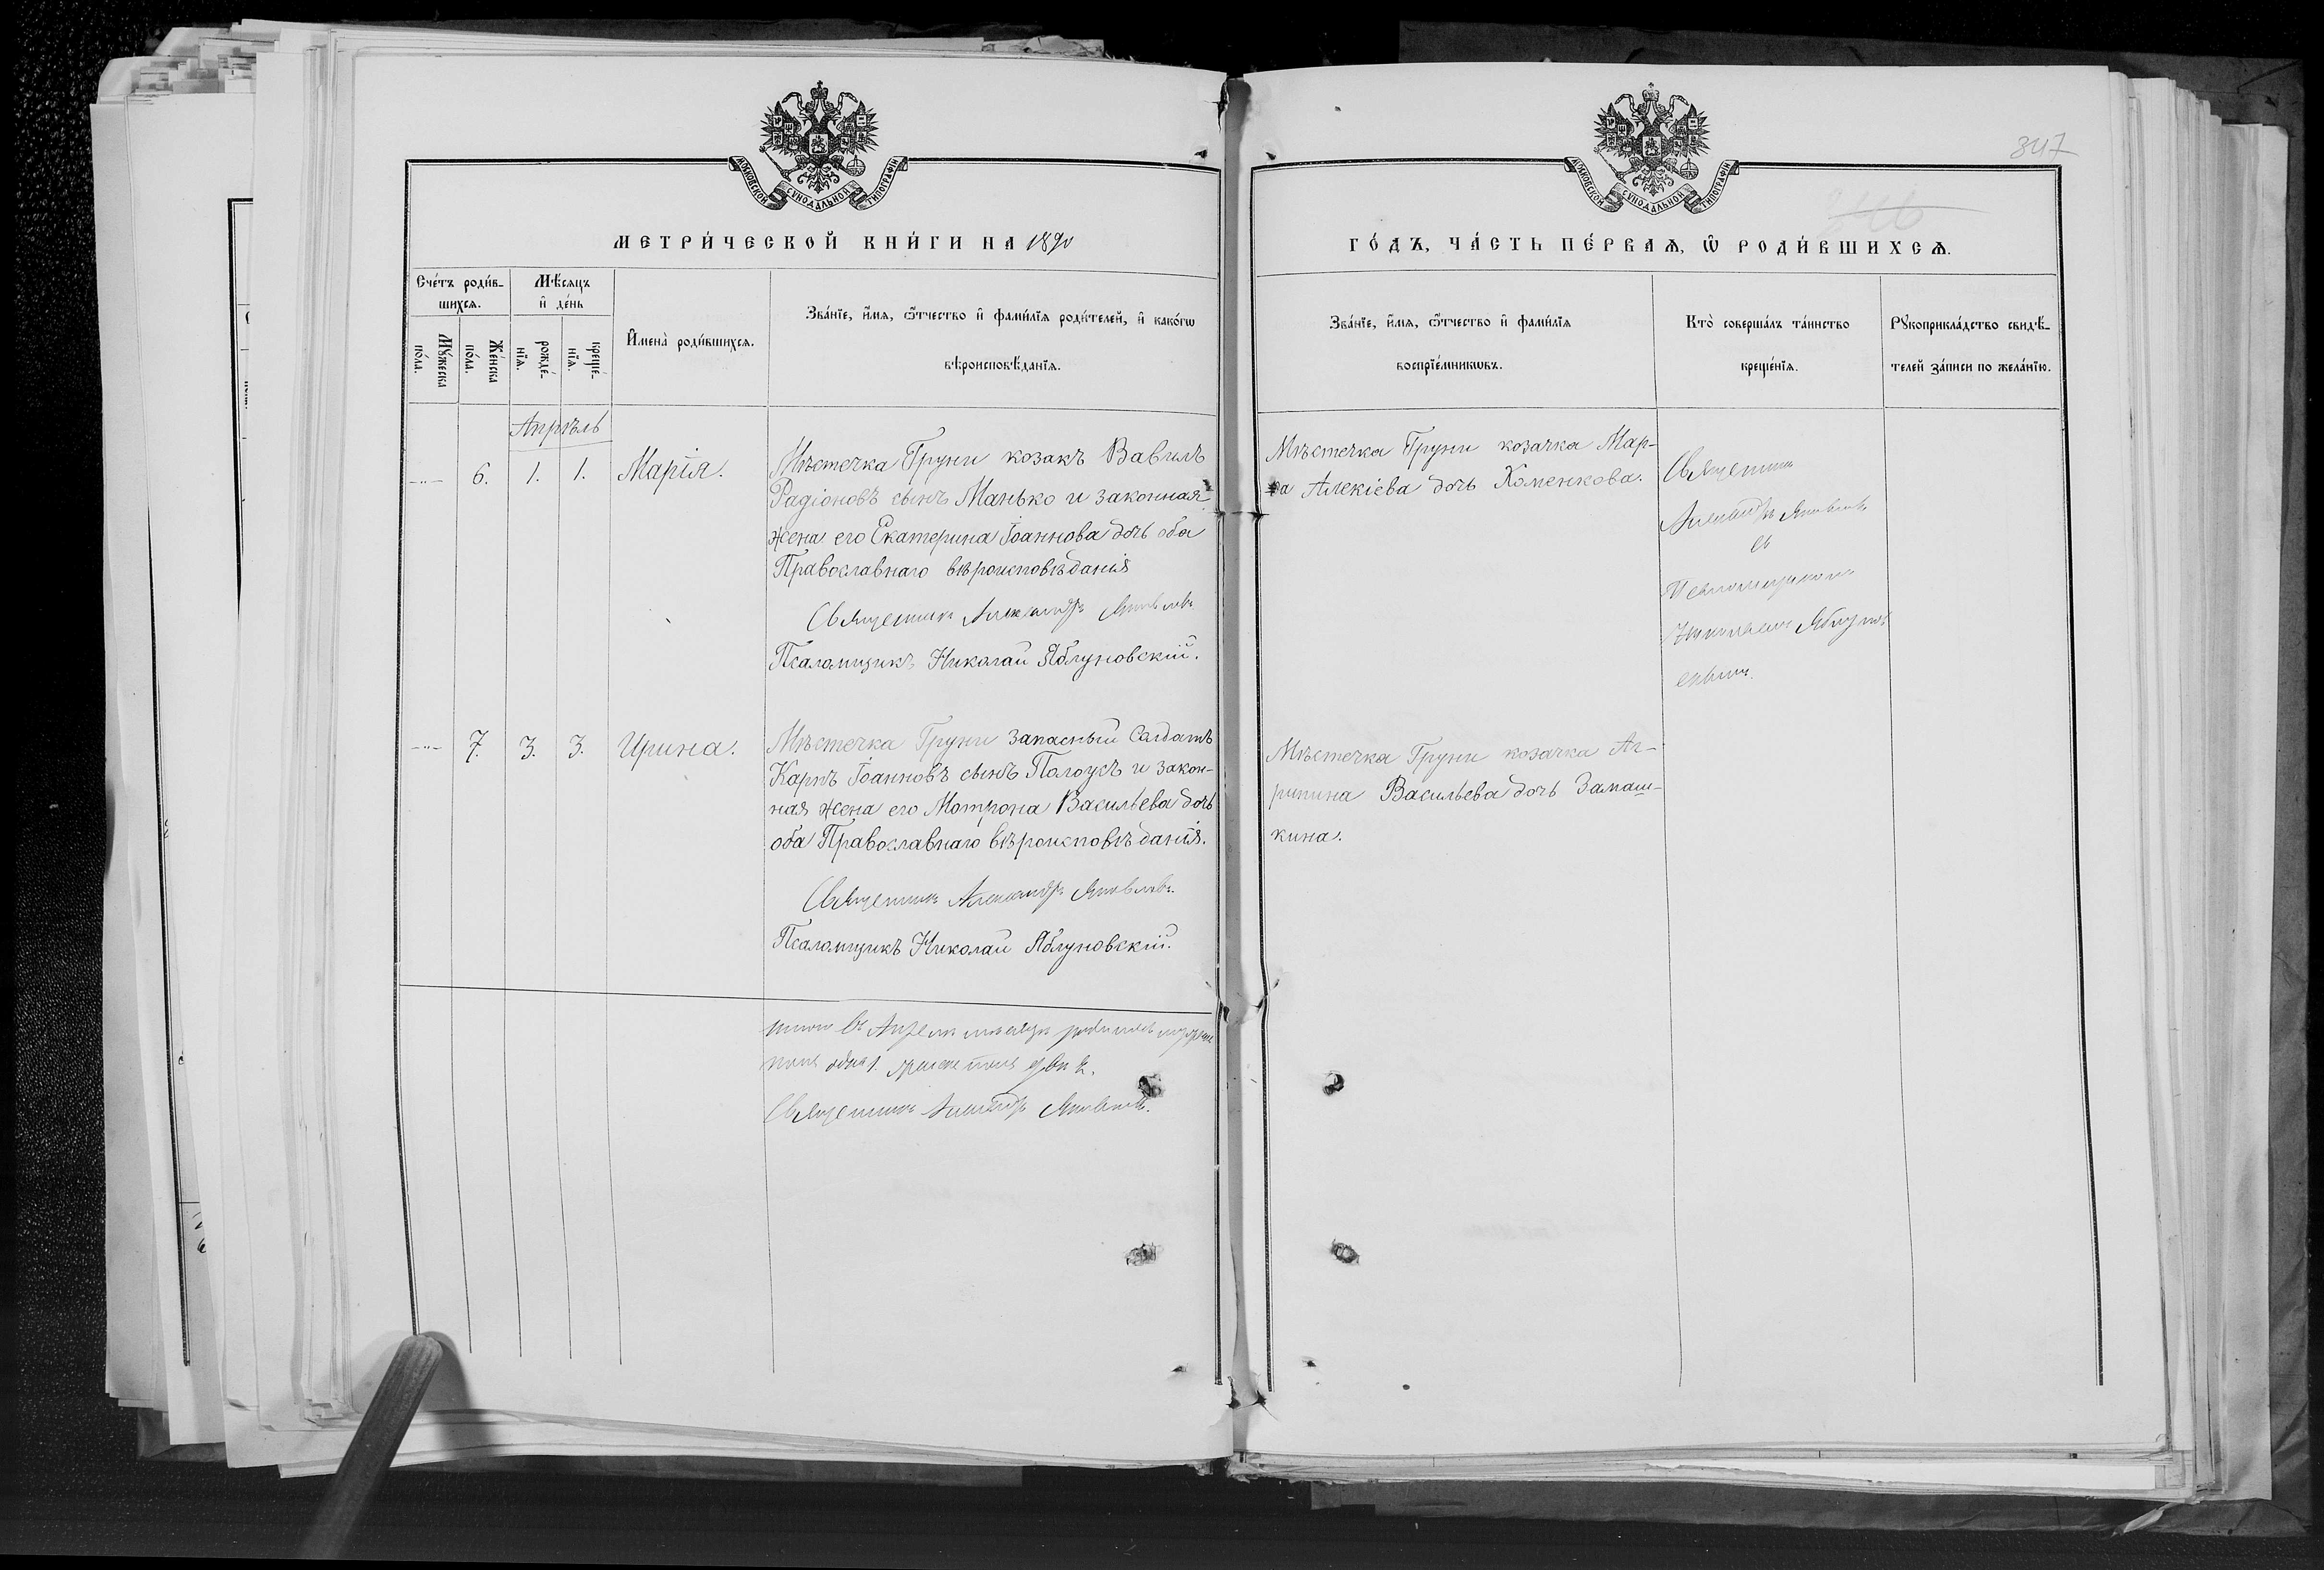 МОСКОВСКОЙ СѴНОДАЛЬНОЙ ТИПОГРАФІИ
МЕТРИ́ЧЕСКОЙ КНИ́ГИ НА 1890
Сче́тъ роди́в-
шихсѧ.
Мѣ́сѧцъ
и҆ де́нь
Мꙋ́жеска
по́ла.
Же́нска
по́ла.
рожде́-
нїѧ.
креще́-
нїѧ.
И҆мена̀ роди́вшихсѧ.
Зва́нїе, и҆́мѧ, ѻ҆́тчество и҆ фами́лїѧ роди́телей, и҆ како́гѡ
вѣроисповѣ́данїѧ.
Апрѣль
6. 1. 1. Марія.
Мѣстечка Груни козакъ Вавилъ
Радіоновъ сынъ Манько и законная
жена его Екатерина Іоаннова дочь оба
Православнаго вѣроисповѣданія
Священникъ Александръ Яковлевъ
Псаломщикъ Николай Яблуновскій.
7. 3. 3. Ирина.
Мѣстечка Груни запасный Салдатъ
Карпъ Іоанновъ сынъ Полоусъ и закон-
ная жена его Мотрона Васильева дочь
оба Православнаго вѣроисповѣданія.
Священникъ Александръ Яковлевъ.
Псаломщикъ Николай Яблуновскій.
Священникъ Александръ Яковлевъ.
347
МОСКОВСКОЙ СѴНОДАЛЬНОЙ ТИПОГРАФІИ
346
ГО́ДЪ, ЧА́СТЬ ПЕ́РВАѦ, Ѡ҆ РОДИ́ВШИХСѦ.
Зва́нїе, и҆́мѧ, ѻ҆́тчество и҆ фами́лїѧ
воспрїе́мникѡвъ.
Кто̀ соверша́лъ та́инство
креще́нїѧ.
Рꙋкоприкла́дство свидѣ́-
телей за́писи по жела́нїю.
Мѣстечка Груни козачка Мар-
ѳа Алекіева дочь Хоменкова.
Священникъ
Александръ Яковлевъ
съ
Псаломщикомъ
Николаемъ Яблунов
скимъ.
Мѣстечка Груни козачка Аг-
рипина Васильева дочь Замаш-
кина.